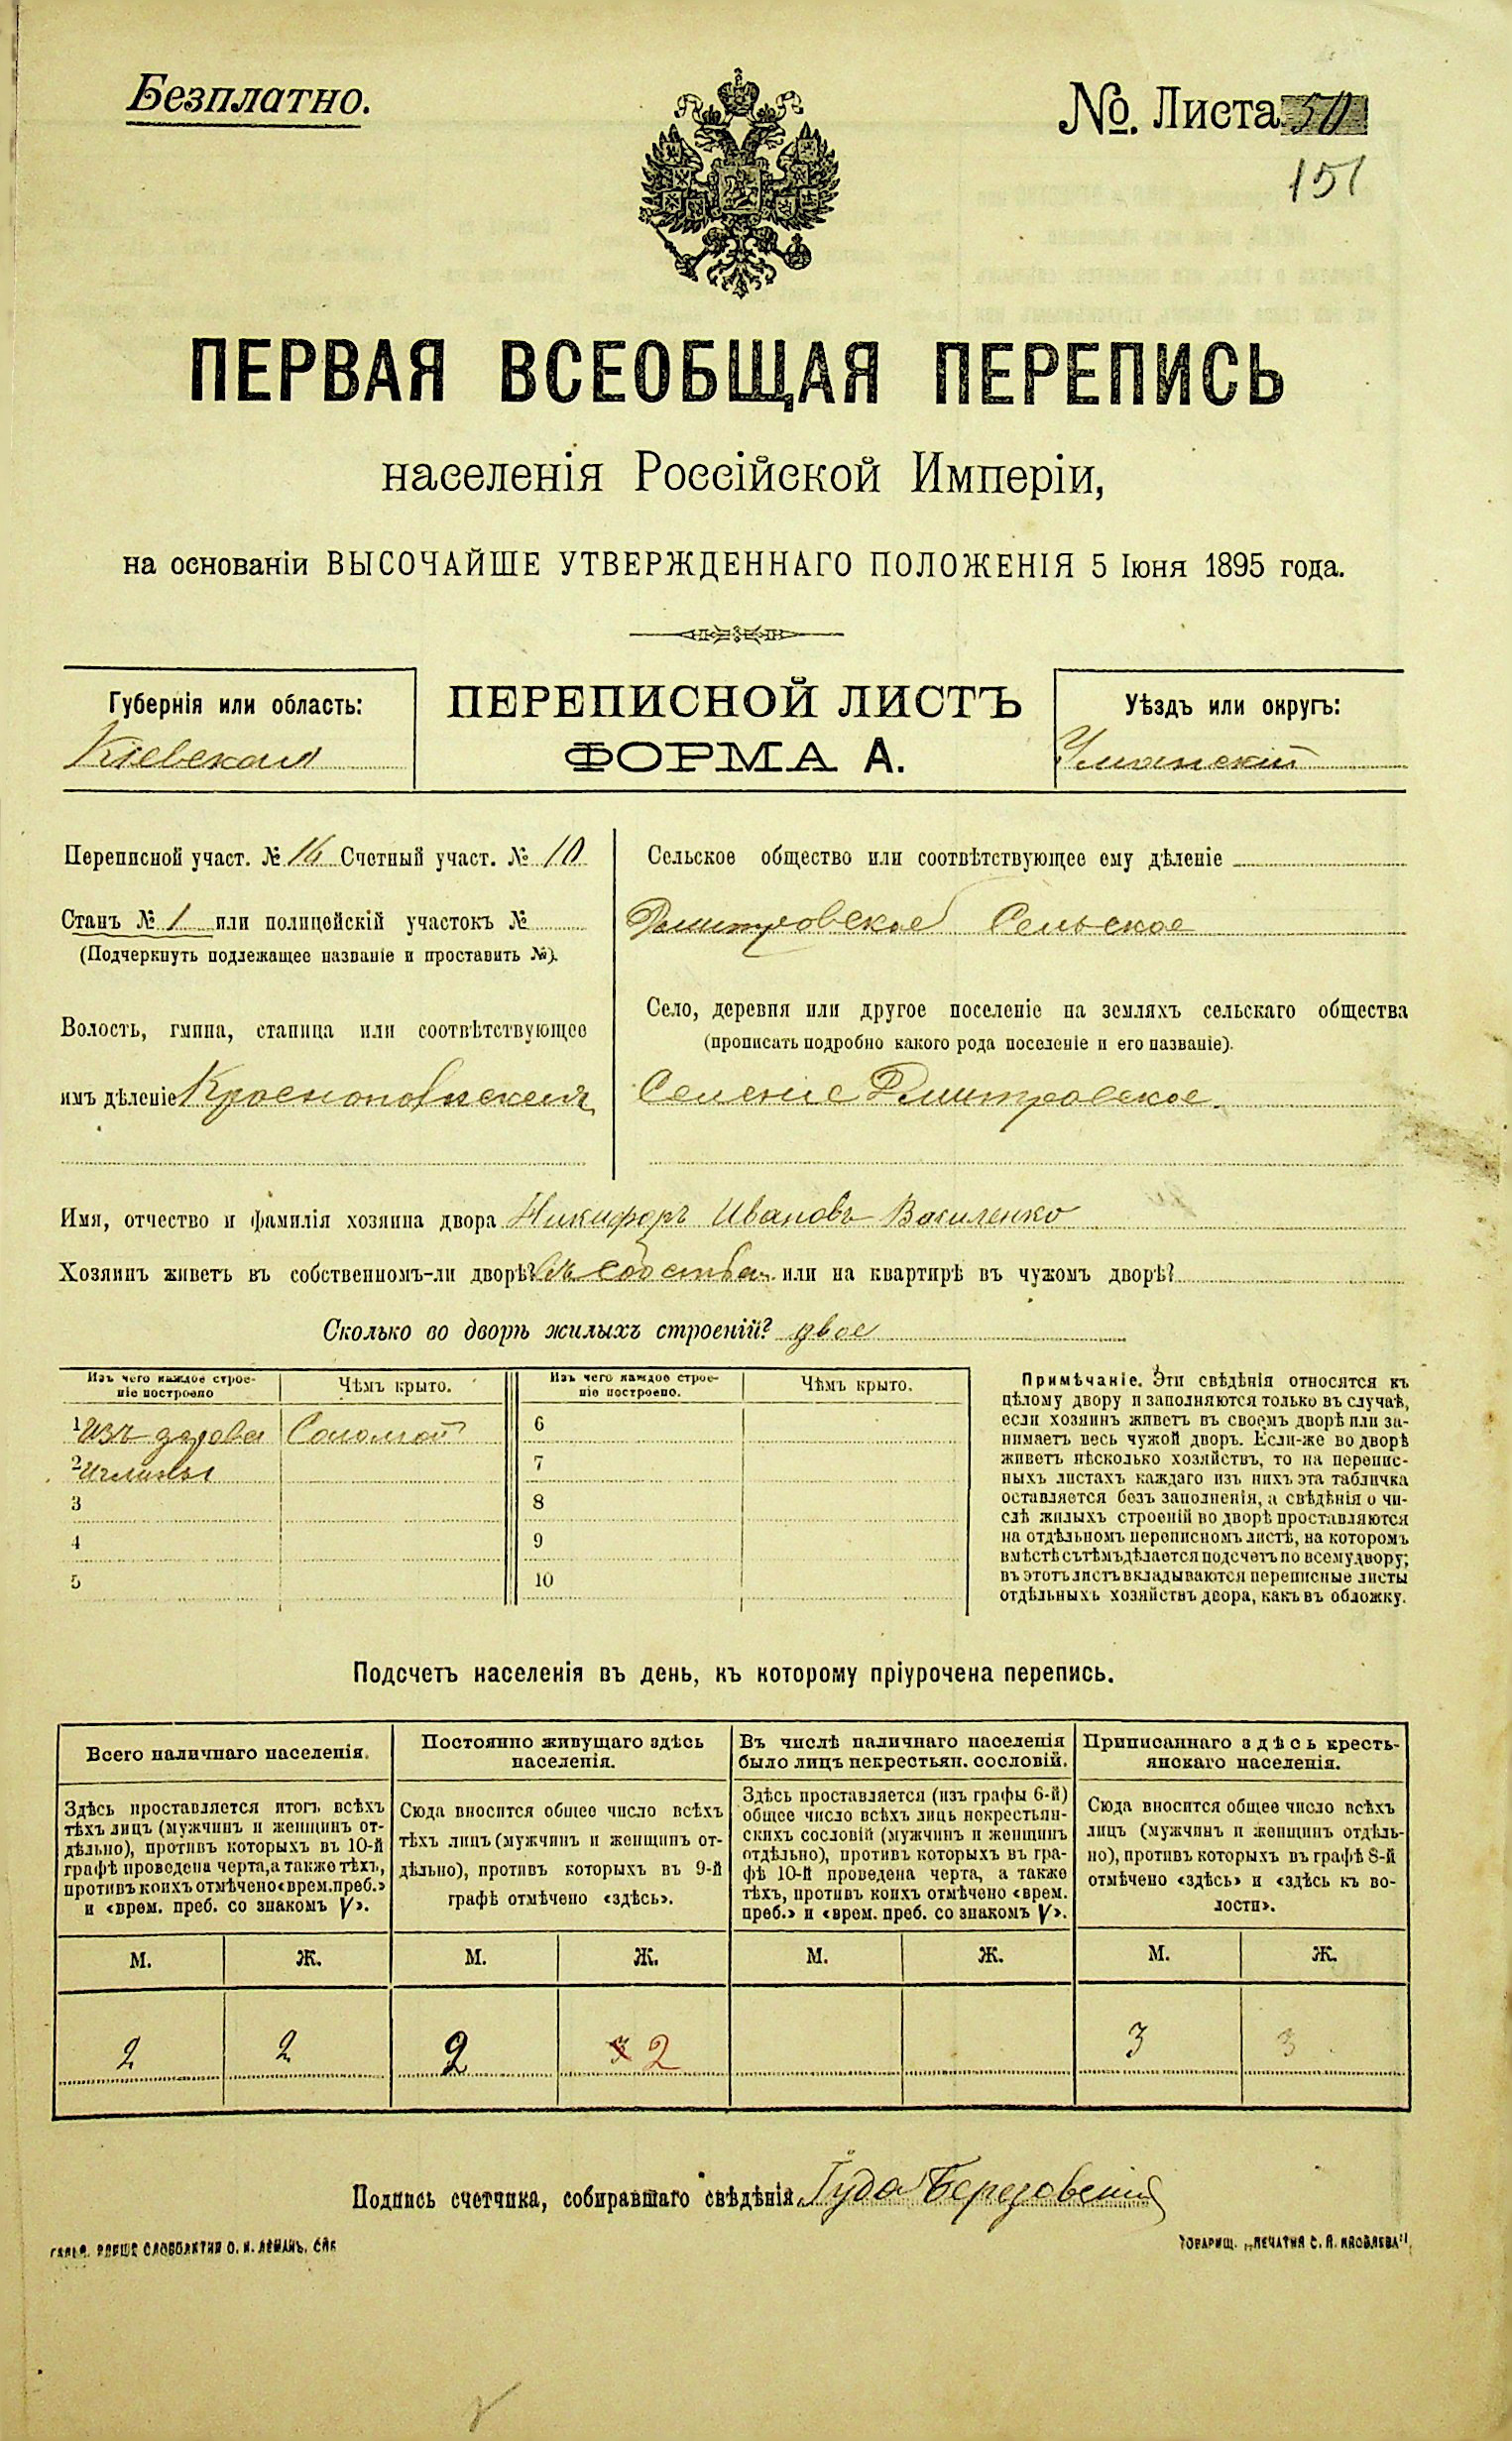 Безплатно.
№. Листа 50
151
ПЕРВАЯ ВСЕОБЩАЯ ПЕРЕПИСЬ
населенія Россійской Имперіи,
на основаніи ВЫСОЧАЙШЕ УТВЕРЖДЕННАГО ПОЛОЖЕНІЯ 5 Іюня 1895 года.
Губернія или область:
Кіевская
ПЕРЕПИСНОЙ ЛИСТЪ
ФОРМА А.
Уѣздъ или округъ:
Уманскій
Переписной участ. № 16 Счетный участ. № 10
Станъ № 1 или полицейскій участокъ №
(Подчеркнуть подлежащее названіе и проставить №).
Волость, гмина, станица или соотвѣтствующее
имъ дѣленіе
Сельское общество или соотвѣтствующее ему дѣленіе
Дмитровское Сельское
Село, деревня или другое поселеніе на земляхъ сельскаго общества
(прописать подробно какого рода поселеніе и его названіе).
Селеніе Дмитровское
Имя, отчество и фамилія хозяина двора Никифоръ Ивановъ Василенко
Хозяинъ живетъ въ собственномъ-ли дворѣ? въ собствен. или на квартирѣ въ чужомъ дворѣ?
Сколько во дворѣ жилыхъ строеній? двое
Изъ чего каждое строе-
ніе построено
Чѣмъ крыто.
1 Изъ дерева Соломой
2 и глины
3
4
5
Изъ чего каждое строе-
ніе построено.
Чѣмъ крыто.
6
7
8
9
10
Примѣчаніе. Эти свѣдѣнія относятся къ
цѣлому двору и заполняются только въ случаѣ,
если хозяинъ живетъ въ своемъ дворѣ или за-
нимаетъ весь чужой дворъ. Если-же во дворѣ
живетъ нѣсколько хозяйствъ, то на перепис-
ныхъ листахъ каждаго изъ нихъ эта табличка
оставляется безъ заполненія, а свѣдѣнія о чи-
слѣ жилыхъ строеній во дворѣ проставляются
на отдѣльномъ переписномъ листѣ, на которомъ
вмѣстѣ съ тѣмъ дѣлается подсчетъ по всему двору;
въ этотъ листъ вкладываются переписные листы
отдѣльныхъ хозяйствъ двора, какъ въ обложку.
Подсчетъ населенія въ день, къ которому пріурочена перепись.
Всего наличнаго населенія.
Здѣсь проставляется итогъ всѣхъ
тѣхъ лицъ (мужчинъ и женщинъ от-
дѣльно), противъ которыхъ въ 10-й
графѣ проведена черта, а также тѣхъ,
противъ коихъ отмѣчено «врем. преб.»
и «врем. преб. со знакомъ V».
М. Ж.
2 2
Постоянно живущаго здѣсь
населенія.
Сюда вносится общее число всѣхъ
тѣхъ лицъ (мужчинъ и женщинъ от-
дѣльно), противъ которыхъ въ 9-й
графѣ отмѣчено «здѣсь».
М. Ж.
2 3 2
Въ числѣ наличнаго населенія
было лицъ некрестьян. сословій.
Здѣсь проставляется (изъ графы 6-й)
общее число всѣхъ лицъ некрестьян-
скихъ сословій (мужчинъ и женщинъ
отдѣльно), противъ которыхъ въ гра-
фѣ 10-й проведена черта, а также
тѣхъ, противъ коихъ отмѣчено «врем.
преб.» и «врем. преб. со знакомъ V».
М. Ж.
Приписаннаго здѣсь кресть-
янскаго населенія.
Сюда вносится общее число всѣхъ
лицъ (мужчинъ и женщинъ отдѣль-
но), противъ которыхъ въ графѣ 8-й
отмѣчено «здѣсь» и «здѣсь къ во-
лости».
М. Ж.
3 3
Подпись счетчика, собиравшаго свѣдѣнія, Іуда Березовскій
СЛОВОЛИТНЯ О. И. ЛЕМАНЪ. СПБ
ТОВАРИЩ. „ПЕЧАТНЯ С. П. ЯКОВЛЕВА".